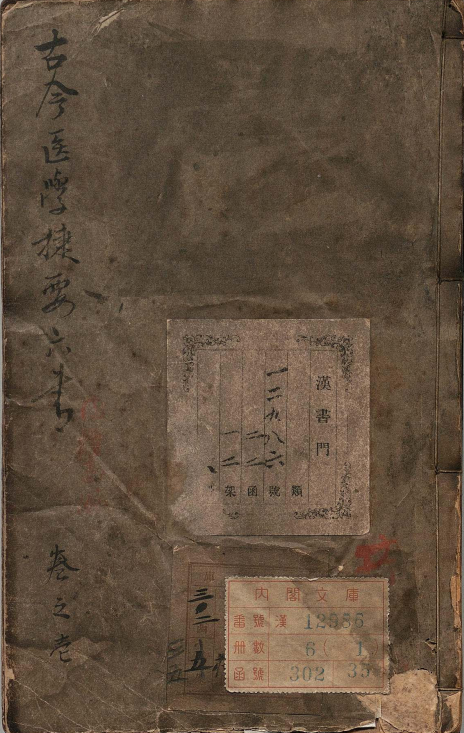 古今医學捷要六書
卷之壱
漢書門
類
一二九八六
號
二二
函
一二
架
三〇二
五
三五
內閣文庫
番號 漢 12986
冊數 6 ( 1
函號 302 35